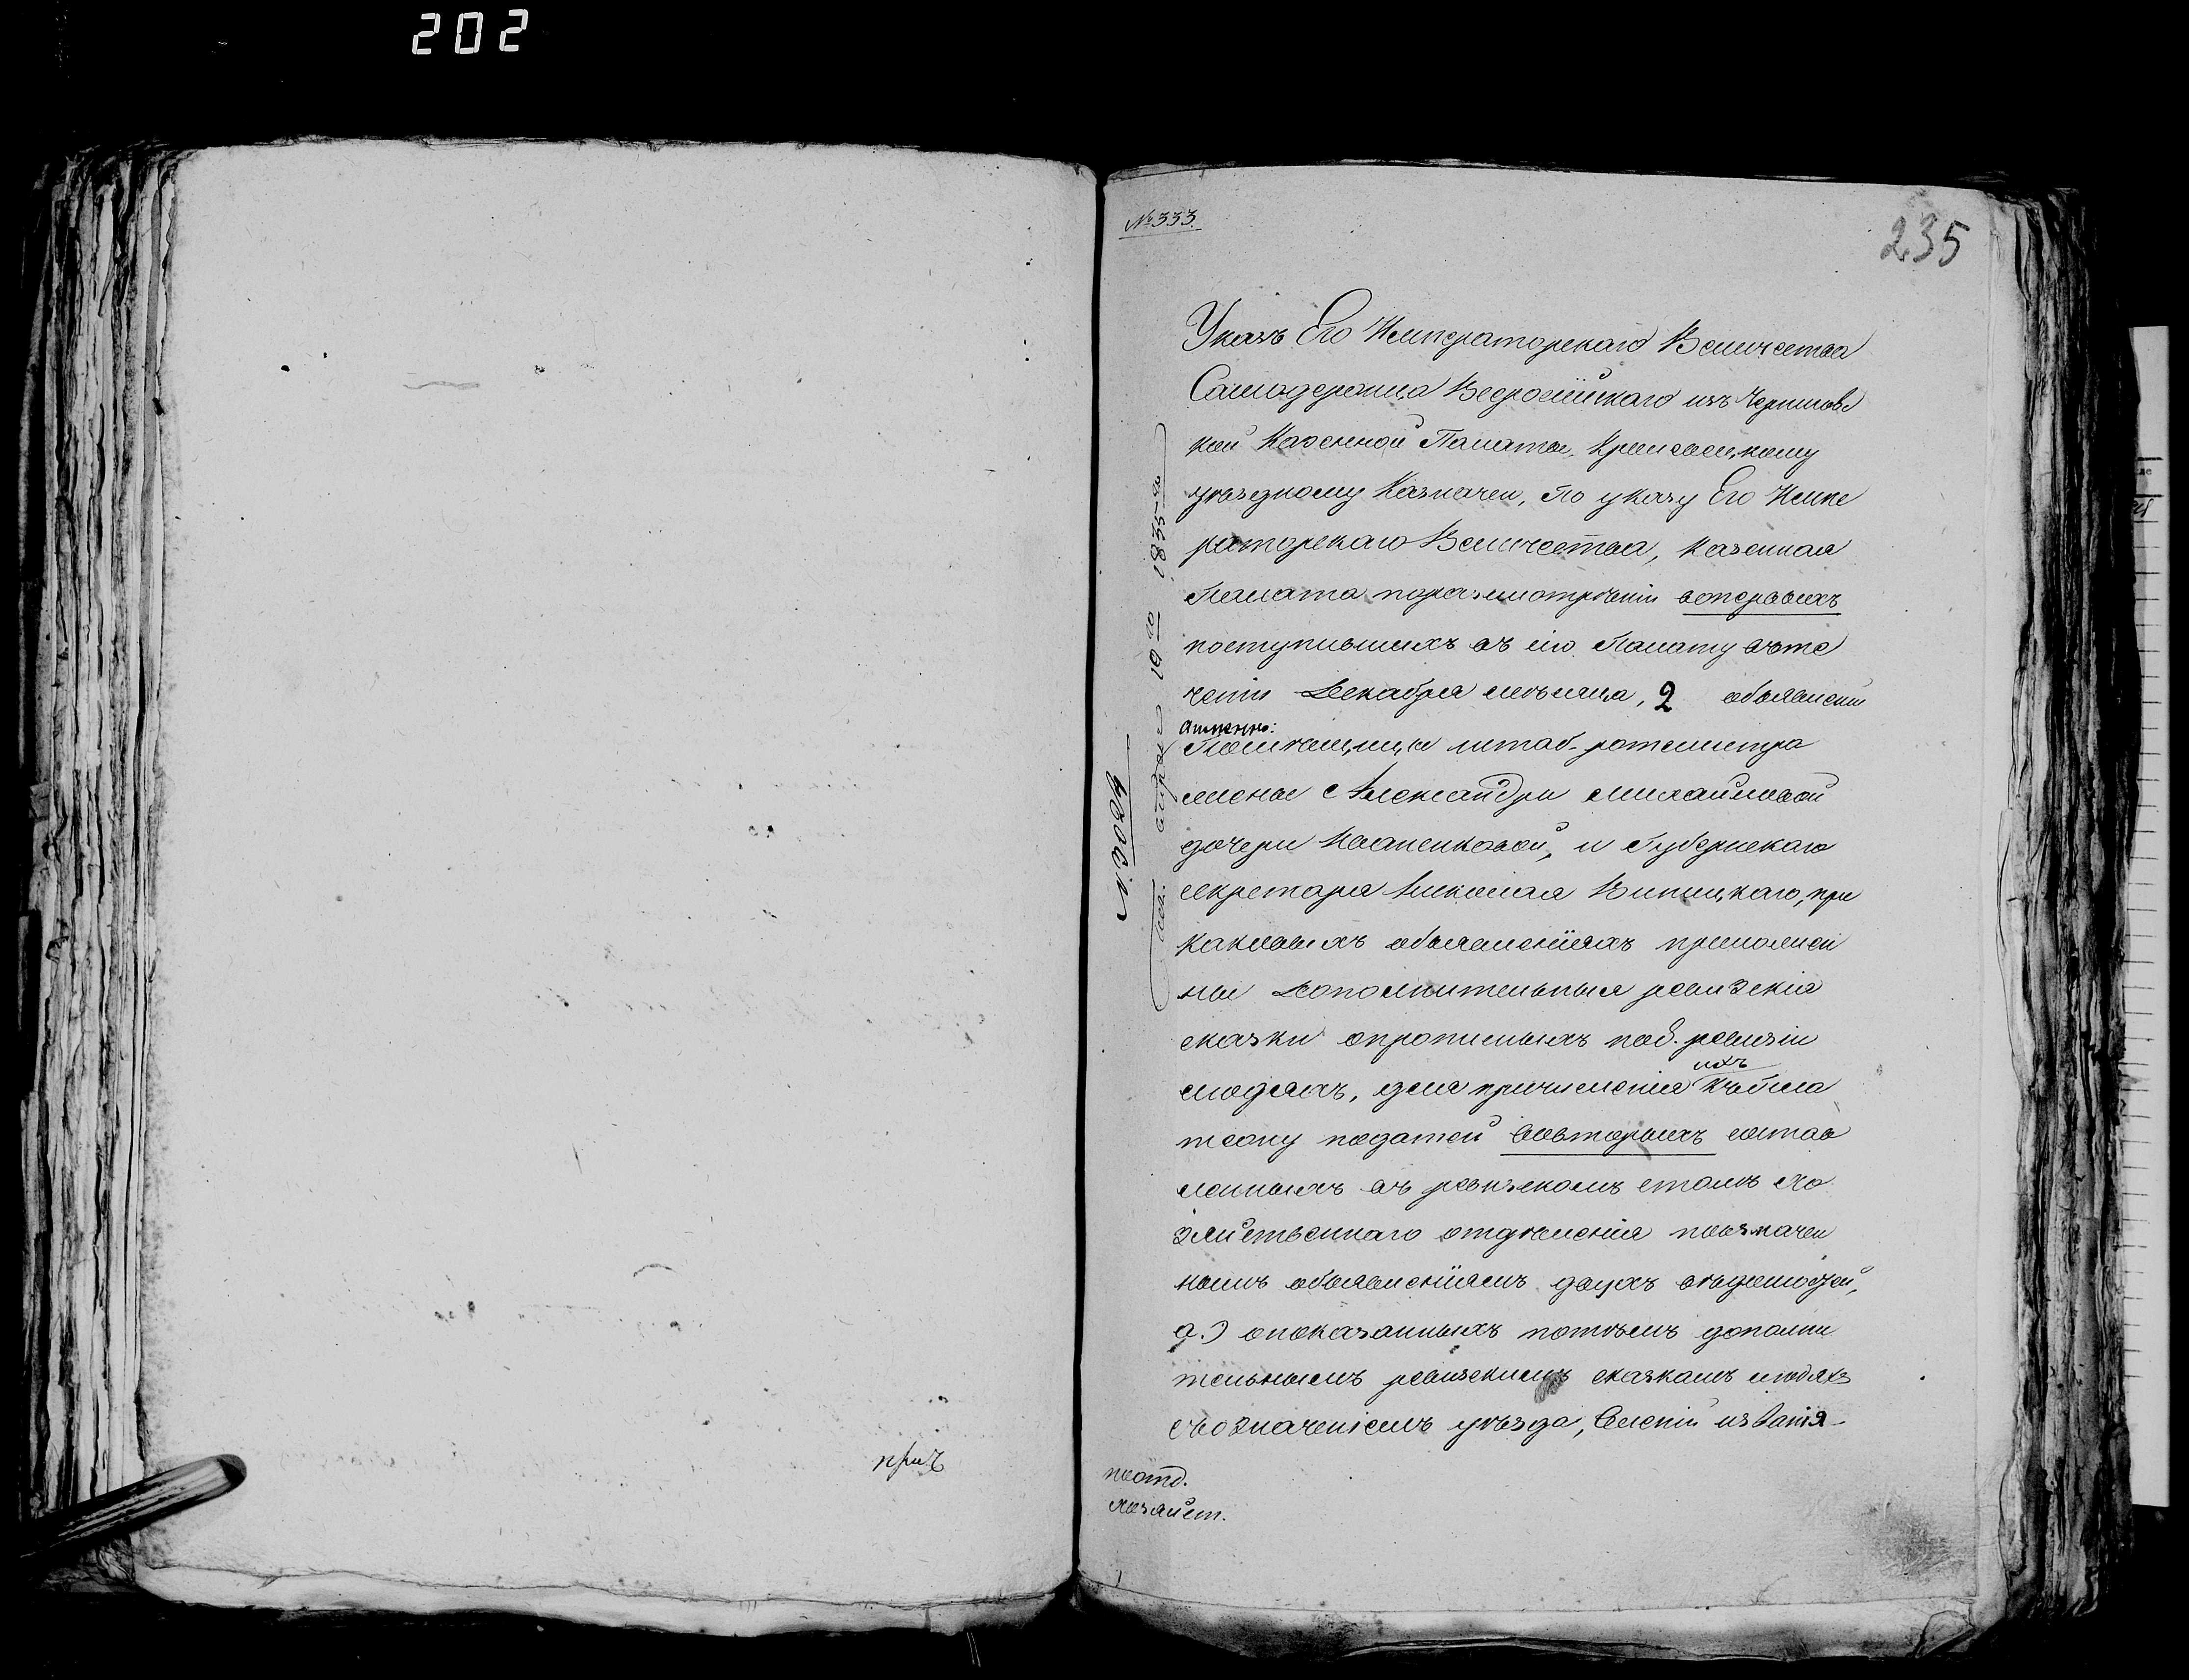 202
прич
№ 333.
235
Указъ Его Императорскаго Величества
Самодержца Всероссійскаго изъ Чернигов
кой Казенной Палаты Кролевецкому
уѣздному Казначею, По указу Его Импе
раторскаго Величества, казенная
Палата поразсмотреніи вопервыхъ
поступившихъ въ сію Палату въте
чепіи Декабря мѣсяца, 2 объявленіи
аименно:
Помѣщицы штаб-ротмистра
жены Александры Михайловой
дочери Иваненковой, и Губернскаго
секретаря Николая Випицкаго, при
каковыхъ объявленіяхъ приложен
ны Дополнительныя ревизскія
сказки опрописныхъ по 8. ревизіи
людяхъ, для причисленія ихъ къ пла
тежу податей вовторыхъ состав
ленныхъ въ ревизскомъ столѣ Хо
зяйственнаго отдѣленія поозначен
нымъ объявленіямъ двухъ вѣдомостей,
а.) опоказанныхъ потѣмъ дополни
тельнымъ ревизскимъ сказкамъ людяхъ
съозначеніемъ уѣзда, селеній изванія
поотд.
хозяйст.
1835 го
19 го